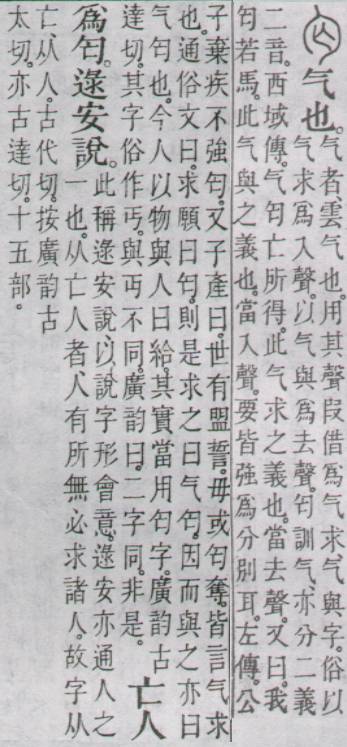 气也。
气者、雲气也。用其聲叚借爲气求、气與字。俗以
气求爲入聲。以气與爲去聲。匃訓气、亦分二義
二音。西域傳。气匃亡所得。此气求之義也。當去聲。又曰。我
匃若馬。此气與之義也。當入聲。要皆強爲分別耳。左傳。公
子棄疾不強匃。又子產曰。世有盟誓。毋或匃奪。皆言气求
也。通俗文曰。求願曰匃。則是求之曰气匃。因而與之亦曰
气匃也。今人以物與人曰給。其實當用匃字。廣韵古
達切。其字俗作丐。與丏不同。廣韵曰。二字同。非是。
亡人
爲匃。逯安說。
此稱逯安說、以說字形會意。逯安亦通人之
一也。从亡人者、人有所無、必求諸人。故字从
亡、从人。古代切。按廣韵古
太切。亦古達切。十五部。